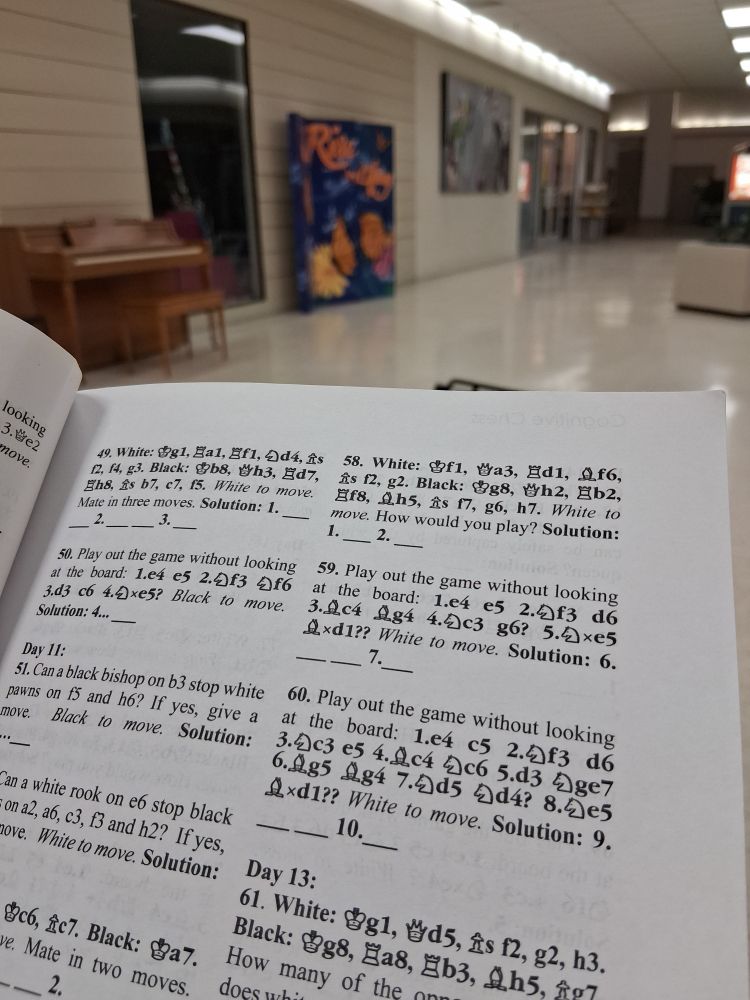 looking
3.♕e2
move.
49. White: ♔g1, ♖a1, ♖f1, ♘d4, ♙s
f2, f4, g3. Black: ♔b8, ♕h3, ♖d7,
♖h8, ♙s b7, c7, f5. White to move.
Mate in three moves. Solution: 1. ___
___ 2. ___ ___ 3. ___
50. Play out the game without looking
at the board: 1.e4 e5 2.♘f3 ♘f6
3.d3 c6 4.♘×e5? Black to move.
Solution: 4... ___
Day 11:
51. Can a black bishop on b3 stop white
pawns on f5 and h6? If yes, give a
move. Black to move. Solution:
...___
Can a white rook on e6 stop black
on a2, a6, c3, f3 and h2? If yes,
move. White to move. Solution:
♔c6, ♙c7. Black: ♔a7.
ve. Mate in two moves.
2.
Cognitive Chess
58. White: ♔f1, ♕a3, ♖d1, ♗f6,
♙s f2, g2. Black: ♔g8, ♕h2, ♖b2,
♖f8, ♗h5, ♙s f7, g6, h7. White to
move. How would you play? Solution:
1. ___ 2. ___
59. Play out the game without looking
at the board: 1.e4 e5 2.♘f3 d6
3.♗c4 ♗g4 4.♘c3 g6? 5.♘×e5
♗×d1?? White to move. Solution: 6.
___ ___ 7.___
60. Play out the game without looking
at the board: 1.e4 c5 2.♘f3 d6
3.♘c3 e5 4.♗c4 ♘c6 5.d3 ♘ge7
6.♗g5 ♗g4 7.♘d5 ♘d4? 8.♘e5
♗×d1?? White to move. Solution: 9.
___ ___ 10.___
Day 13:
61. White: ♔g1, ♕d5, ♙s f2, g2, h3.
Black: ♔g8, ♖a8, ♖b3, ♗h5, ♙g7
How many of the